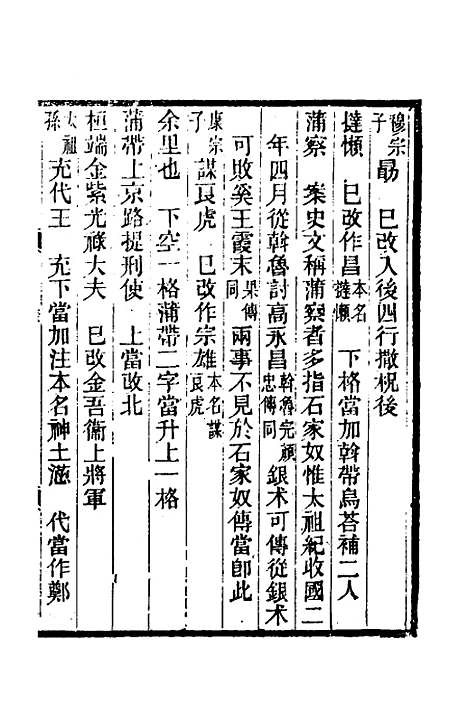 穆宗子勗　已改入後四行撒梲後
撻懶　已改作昌本名撻懶　下格當加斡帶烏荅補二人
蒲察　案史文稱蒲察者多指石家奴惟太祖紀收國二
年四月從斡魯討高永昌斡魯完顏忠傳同銀术可傳從銀术
可敗奚王霞末杲傳同兩事不見於石家奴傳當卽此
康宗子謀良虎　已改作宗雄本名謀良虎
余里也　下空一格蒲帶二字當升上一格
蒲帶上京路提刑使　上當改北
桓端金紫光祿大夫　已改金吾衞上將軍
太祖孫充代王　充下當加注本名神土懣　代當作鄭